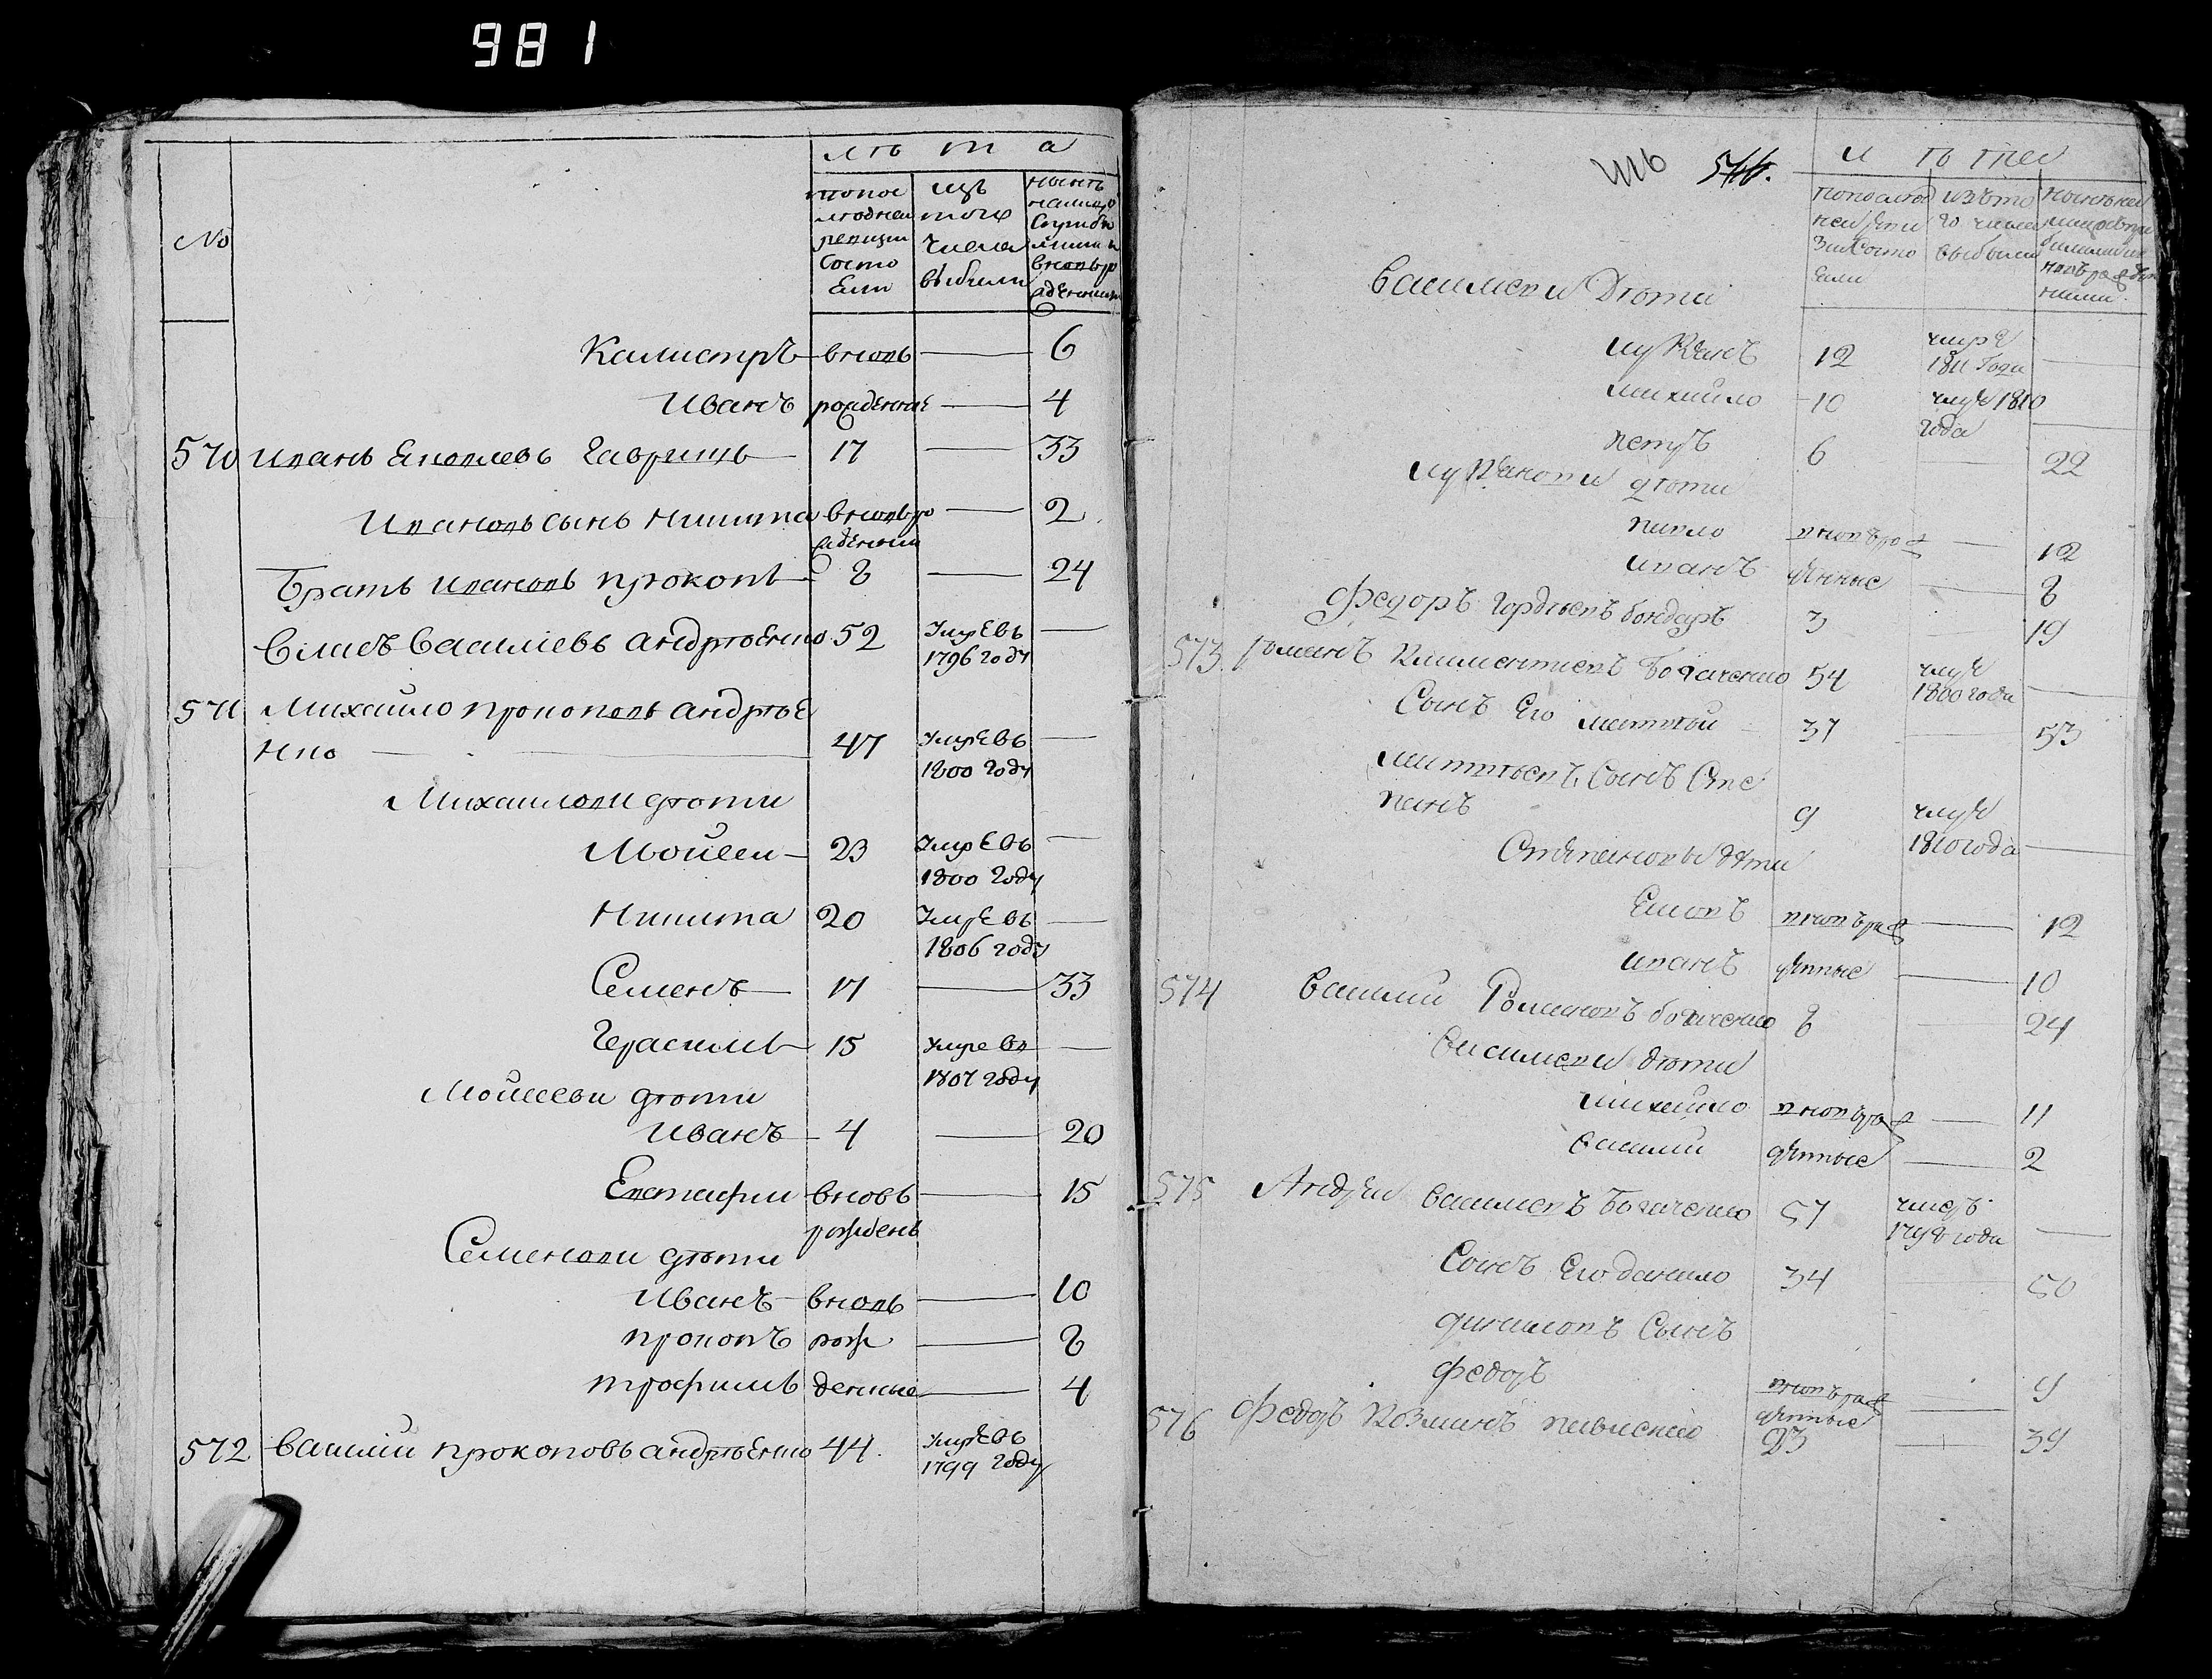 981
лѣта
№
по пос
лѣдней
ревизии
Состо
Яли
изъ
того
числа
выбыли
нынѣ
на лицо
Калистръ вновь — 6
Иванъ рожденные — 4
570 Иванъ Яковлевъ Гавришъ 17 — 33
Ивановъ сынъ Никита вновь ро — 2
жденный
Братъ Ивановъ Прокопъ 8 — 24
Власъ Василіевъ Андрѣенко 52 умре въ —
1796 году
571 Михайло Прокоповъ Андрѣе
нко — 47 умре въ —
1800 году
Михайлови дѣти
Мойсей — 23 умре въ —
1800 году
Никита 20 умре въ —
1806 году
Семенъ — 17 — 33
Герасимъ 15 умре въ —
1807 году
Мойсееви дѣти
Иванъ — 4 — 20
Евстафий вновь — 15
рожденъ
Семенови дѣти
Иванъ вновь — 10
Прокопъ рож — 8
Трофимъ денные — 4
572 Василий Прокоповъ Андрѣенко 44. умре въ
1799 году
544.
лѣтеи
Василеви Дѣти
Лукянъ 12 умре
1811 года —
Михайло 10 умре 1810
года —
Петръ 6 — 22
Лукянови дѣти
Павло вновь рож — 12
Иванъ денные — 8
Федоръ Гордѣевъ Бондаръ 3 — 19
573 Романъ Климентиевъ Богаченко 54 умре
1800 года —
Сынъ Его Матвѣй 37 — 53
Матвѣевъ Сынъ Сте
панъ 9 умре
1810 года —
Степановы дѣти
вновь рож — 12
Иванъ денные — 10
574 Василий Романовъ Богаченко 8 — 24
Василеви дѣти
Михайло вновь рож — 11
Василий денные — 2
575 Андрей Василевъ Богаченко 57 умеръ
1798 года —
Сынъ Его Данило 34 — 50
Даниловъ Сынъ
Федоръ вновь рож — 9
денные
576 Федоръ Козминъ 23 — 39